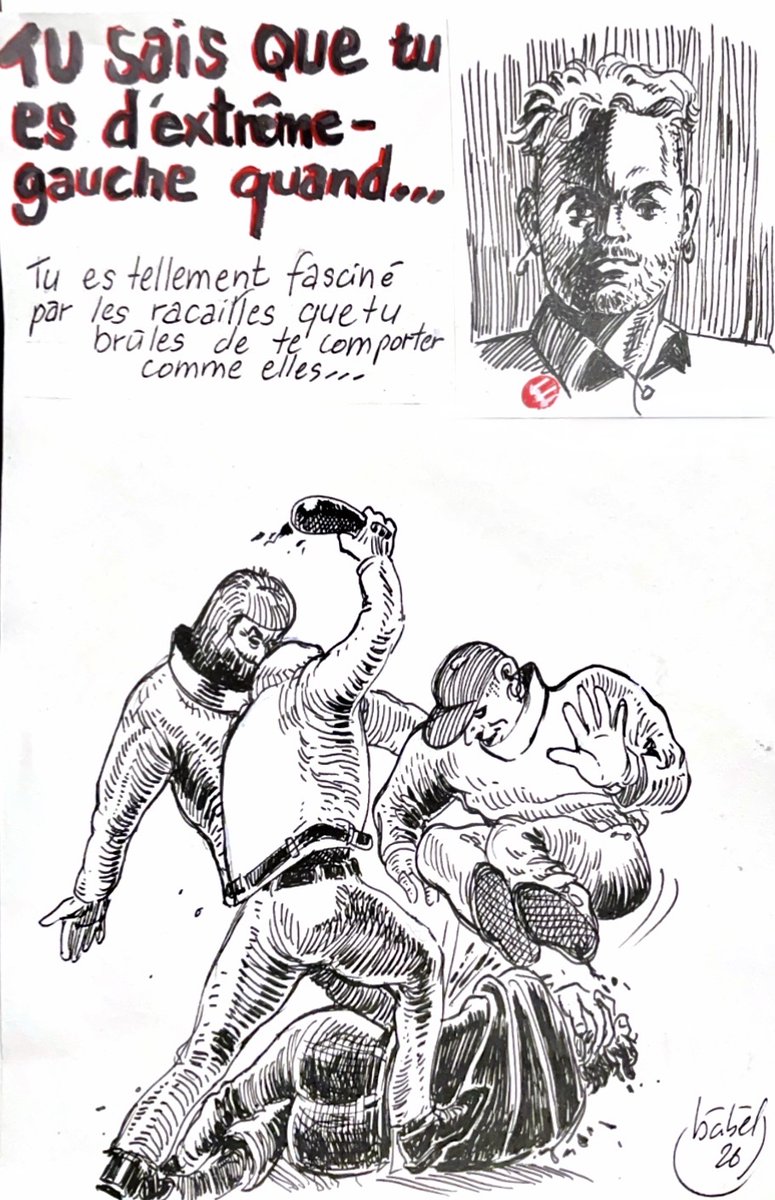 Tu sais que tu
es d'extrême-
gauche quand...
Tu es tellement fasciné
par les racailles que tu
brûles de te comporter
comme elles...
bābēl
26